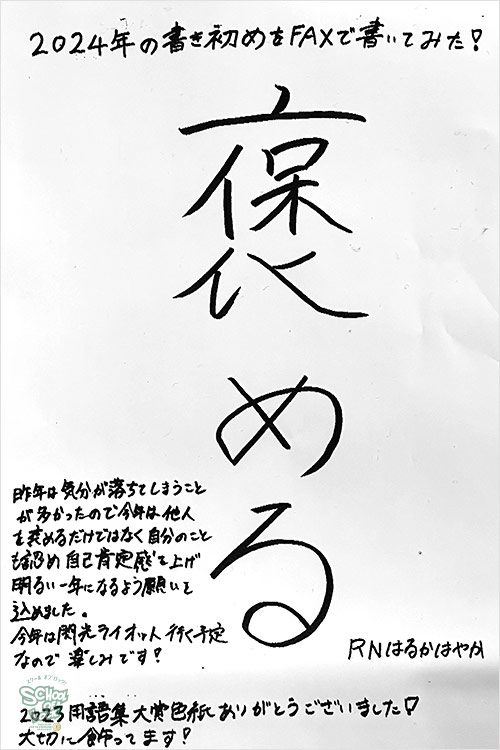 2024年の書き初めをFAXで書いてみた!
褒める
昨年は気分が落ちてしまうこと
が多かったので今年は他人
を褒めるだけではなく自分のこと
も認め自己肯定感を上げ
明るい一年になるよう願いを
込めました。
今年は閃光ライオット行く予定
なので楽しみです!
RNはるかはやか
2023用語集大賞色紙ありがとうございました!
大切に飾ってます!
スクール オブ ロック!
SCHOOL